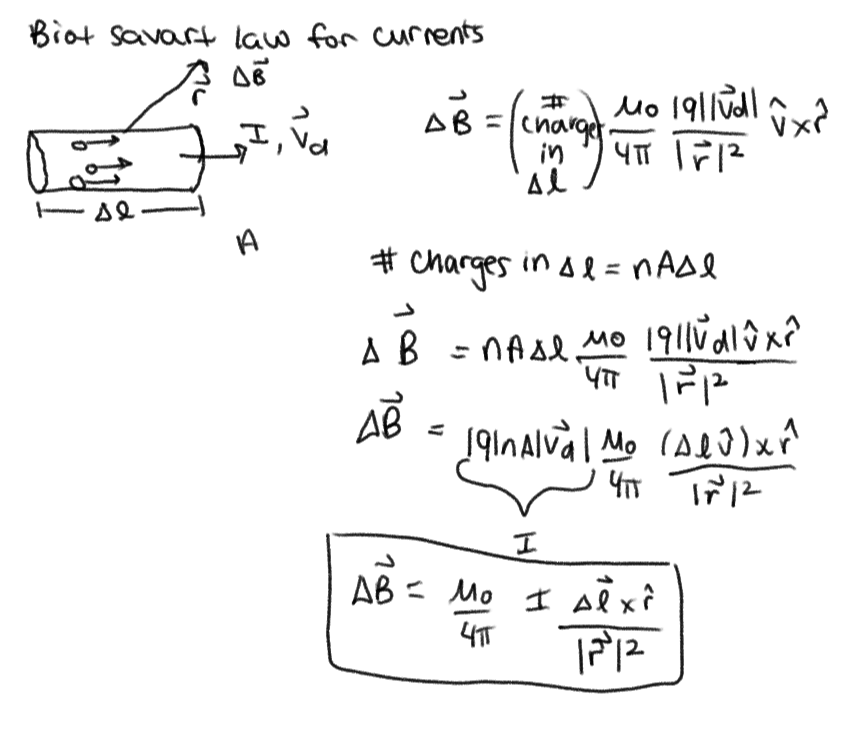 Biot savart law for currents
r⃗ ΔB⃗
I, v⃗d
Δl
A
ΔB⃗ = (# charges in Δl) μ₀/4π |q||v⃗d|/|r⃗|² v̂ x r̂
# charges in Δl = nAΔl
ΔB⃗ = nAΔl μ₀/4π |q||v⃗d|v̂ x r̂/|r⃗|²
ΔB⃗ = |q|nA|v⃗d| μ₀/4π (Δl v̂) x r̂/|r⃗|²
I
ΔB⃗ = μ₀/4π I Δl⃗ x r̂/|r⃗|²